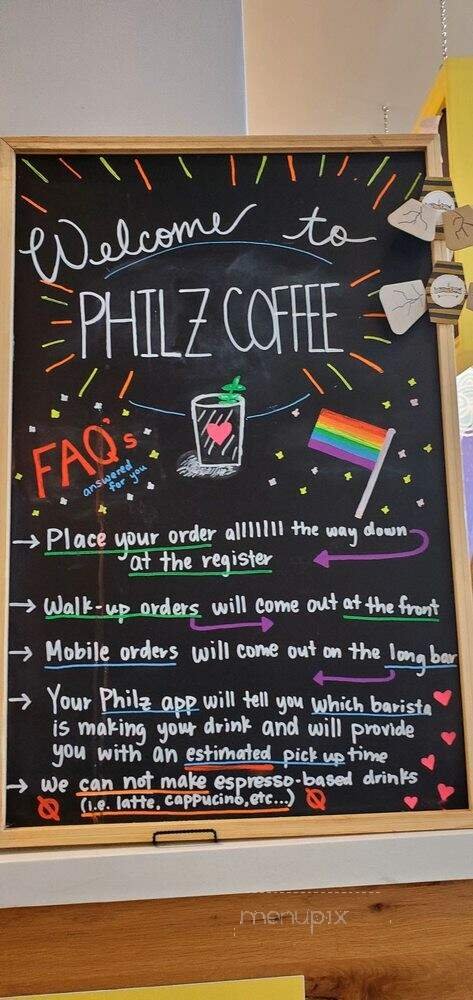 Welcome to
PHILZ COFFEE
FAQ's
answered
for you
→ Place your order allllllll the way down
at the register
→ Walk-up orders will come out at the front
→ Mobile orders will come out on the long bar
→ Your Philz app will tell you which barista
is making your drink and will provide
you with an estimated pick up time
→ we can not make espresso-based drinks
(i.e. latte, cappucino, etc...)
menupix